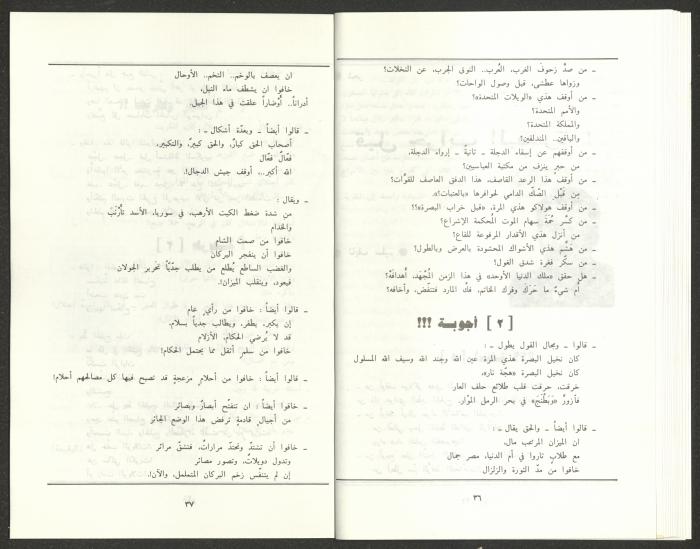 ـ من صدّ زحوفَ الغرب، العُرب.. النوق الجرب، عن النخلات؟
وزواها عطشى، قبل وصول الواحات؟
ـ من أوقف هذي «الويلات المتحدة»؟
والأمم المتحدة؟
والمملكة المتحدة؟
والباقين.. المندلقين؟
ـ من أوقفهم عن إسفاء الدجلة ـ ثانية ـ إرواء الدجلة،
من حبرٍ ينزف من مكتبة العباسيين؟
ـ من أوقف هذا الرعد القاصف، هذا الدفق العاصف للقوّات؟
من قَبْلِ الصّكّ الدامي لحوافرها «بالعتبات»،
ـ من أوقف هولاكو هذي المرة، «قبل خراب البصرة»؟؟
ـ من كسّر ثمّة سهام الموت المُحكمة الإشراع؟
من أنزل هذي الأقدار المرفوعة للقاع؟
ـ من هشّم هذي الأشواك المحشودة بالعرض وبالطول؟
ـ من سكّر فغرة شدق الغول؟
ـ هل حقق «ملك الدنيا الأوحد» في هذا الزمن المُجْهَد، أهدافَهُ؟
أم شيءٌ ما حَرّك وفرك الخاتم، فكّ المارد فتنفّض، وأخافه؟
[ ٢ ] أجوبـة !!!
ـ قالوا ـ ومجال القول يطول ـ :
كان نخيل البصرة هذي المرة عين الله وجند الله وسيف الله المسلول
كان نخيل البصرة «هجّة نار»،
خرقت، حرقت قلب طلائع حلف العار
فأزورّ «وَتطلْنَج» في بحر الرمل الموّار.
ـ قالوا أيضاً ـ والحق يقال ـ :
ان الميزان المرتجب مال،
مع طلابٍ ثاروا في أم الدنيا، مصر جمال
خافوا من مدّ الثورة والزلزال
٣٦
ان يعصف بالوخم.. التخم.. الأوحال
خافوا ان يشطف ماء النيل،
أدراناً.. أوْضاراً علقت في هذا الجيل.
ـ قالوا أيضاً ـ وبعدّة أشكال ـ :
أصحاب الحق كبارٌ، والحق كبيرٌ، والتكبير،
فعّالٌ فعّال
الله أكبر... أوقف جيش الدجال!.
ـ ويقال :
من شدة ضغط الكبت الأرهب، في سوريا، الأسد تأرْنَبَ
والخدام
خافوا من صمت الشام
خافوا أن ينفجر البركان
والغضب الساطع يُطلع من يطلب جدّيّاً تحرير الجولان
فيعود، وينقلب الميزان!.
ـ قالوا أيضاً : خافوا من رأيٍ عام
إن يكبر، يظفر، ويطالب جدياً بسلام،
قد لا يُرضي الحكام، الأزلام
خافوا من سلمٍ أثقل مما يحتمل الحكام!.
ـ قالوا أيضاً : خافوا من أحلامٍ مزعجةٍ قد تصبح فيها كل مصالحهم أحلام!
ـ خافوا أيضاً : ان تتفتّح أبصارٌ وبصائر
من أجيالٍ قادمةٍ ترفض هذا الوضع الجائر
ـ خافوا أن تشتدّ وتحتدّ مراراتٌ، فتنشقّ مرائر
وتدول دويلاتٌ، وتصور مصائر
إن لم يتنفّس زخم البركان المتململ، والآن!.
٣٧